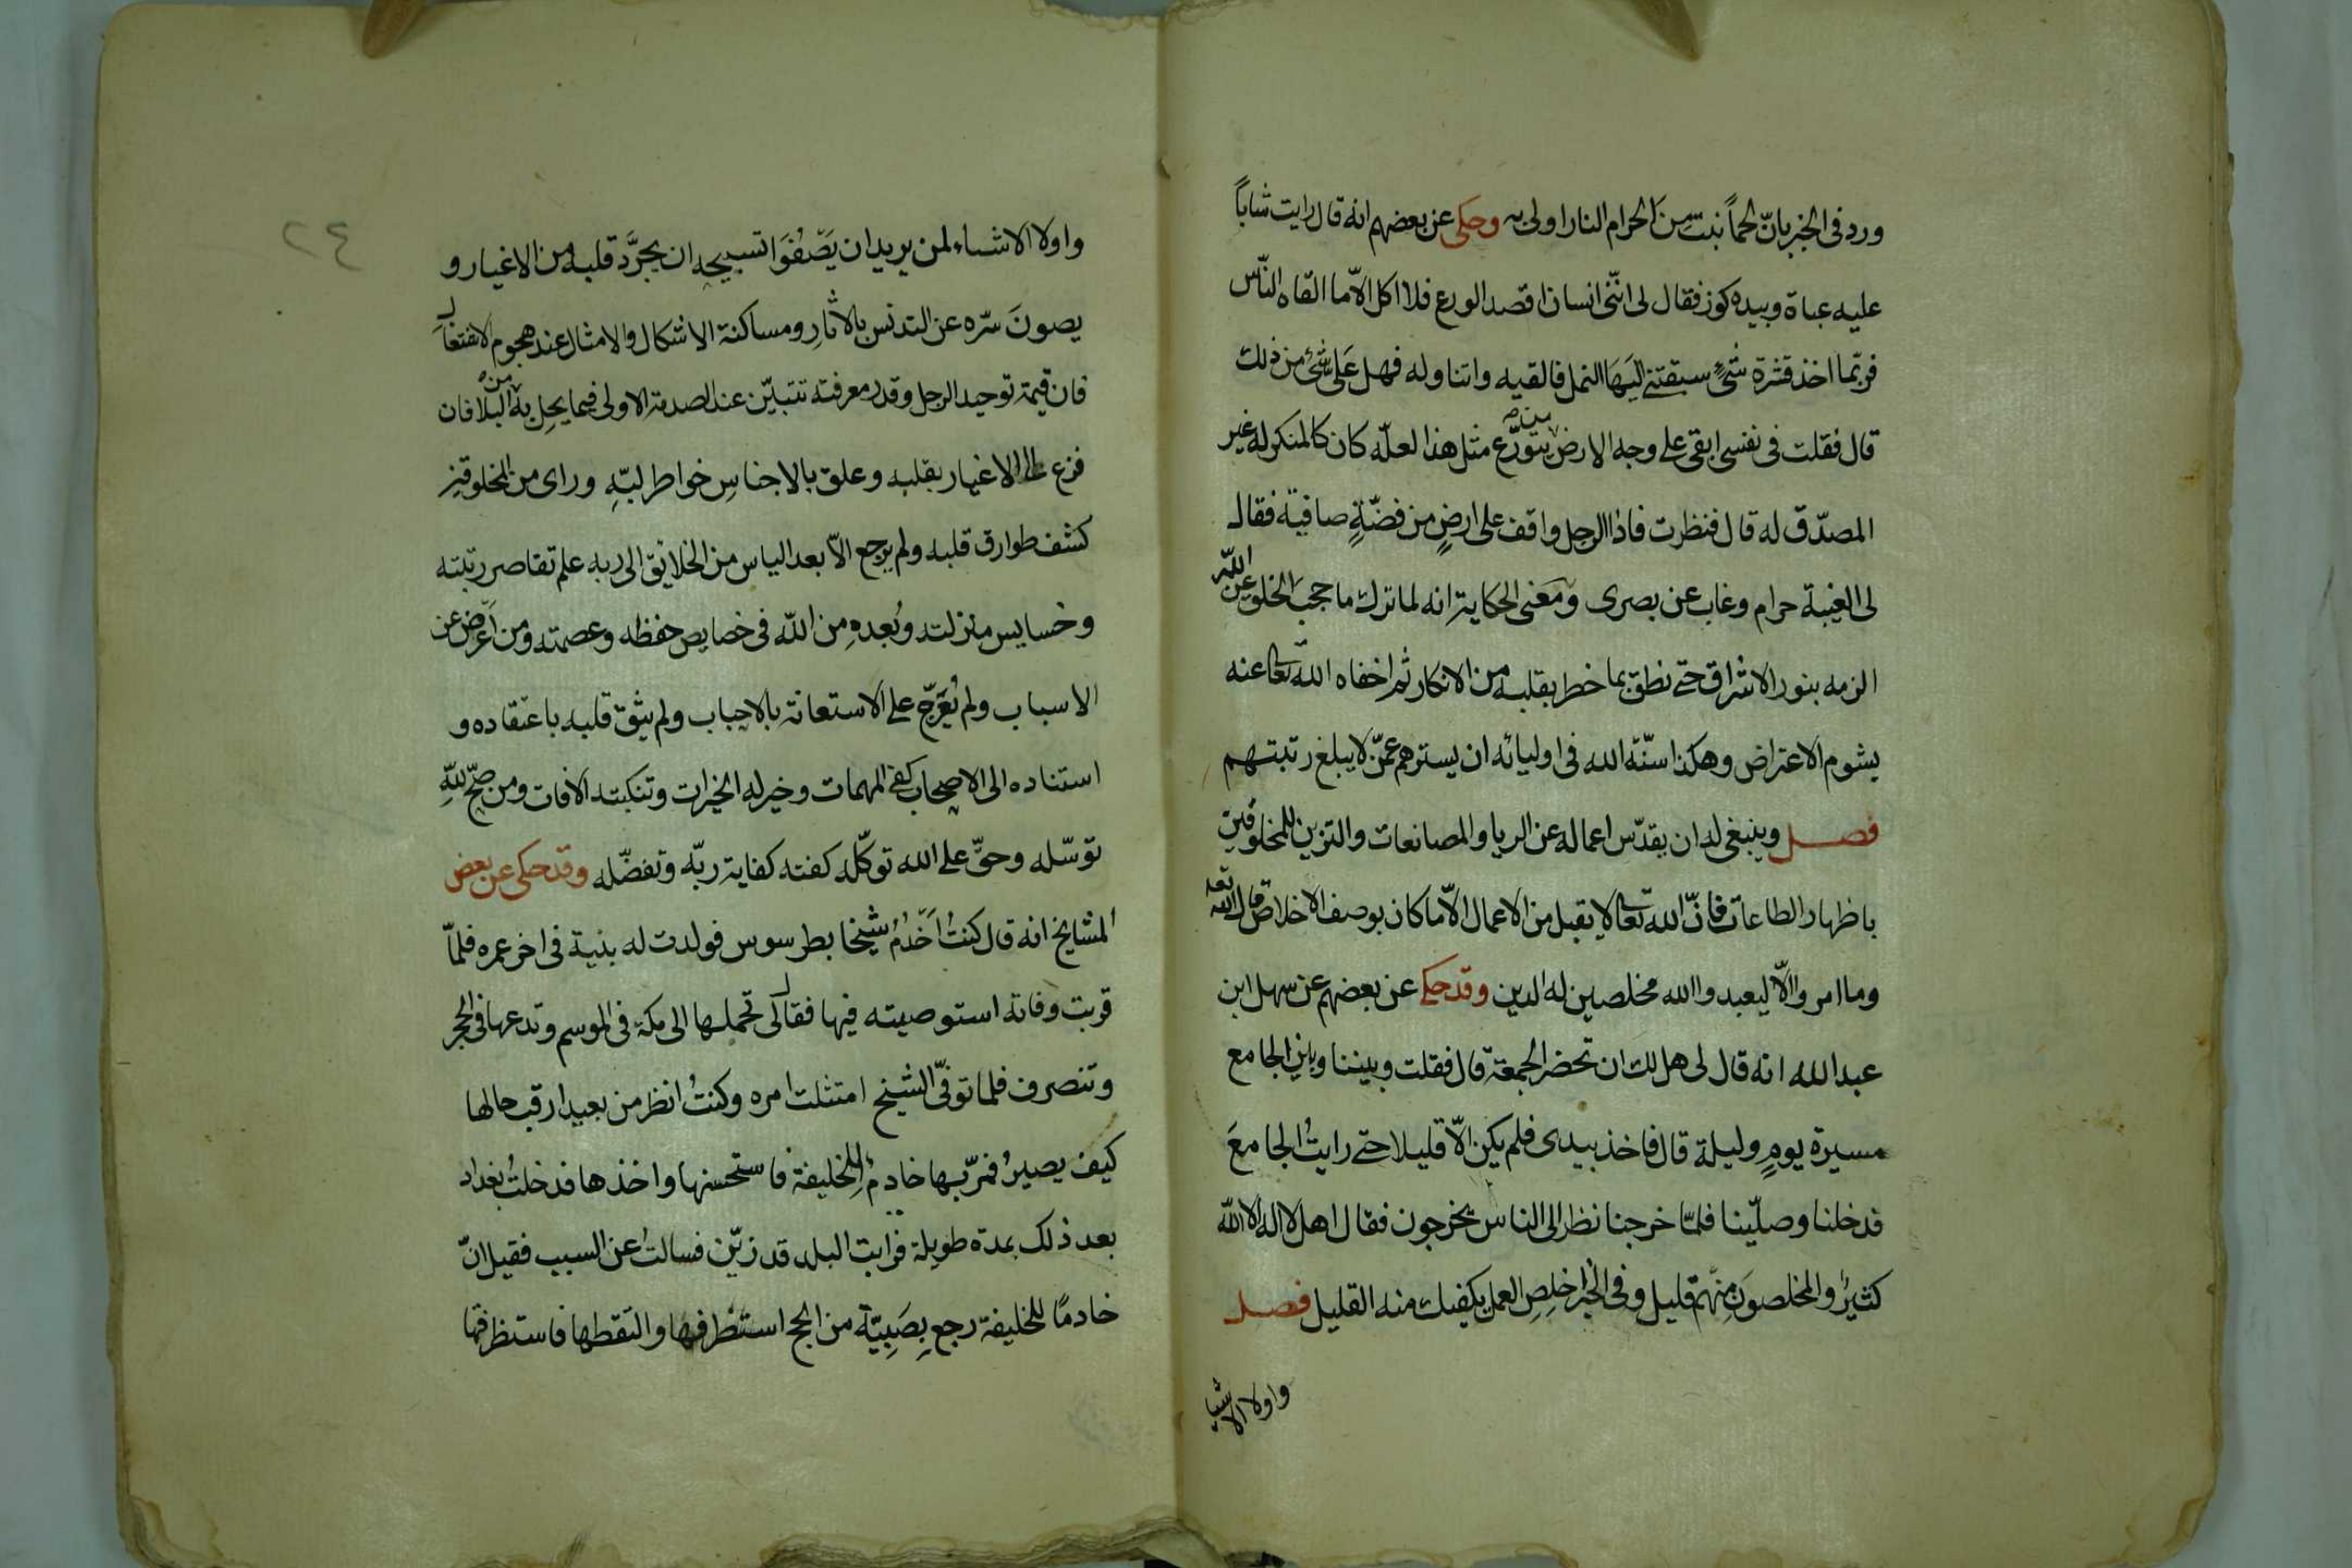 ورد فى الخبر بانّ لحماً نبت مِنَ الحرام النار اولى به وحكى عن بعضهم انه قال رايت شاباً
عليه عباة وبيده كوز فقال لى انّنى انسان اقصد الورع فلا اكل الاّ ما القاه النّاس
فربّما اخذ قشرة شىءٍ سبقتنى اليَهَا النمل فالقيه واتناوله فهل عَلىّ شئ من ذلك
قال فقلت فى نفسى ابقى على وجه الارض من يتورّع مثل هذا لعلّه كان كالمنكر له غير
المصدّق له قال فنظرت فاذا الرجل واقف على ارضٍ من فضّةٍ صافية فقال
لى الغيبة حرام وغاب عن بصرى ومَعنى الحكاية انه لما ترك ما حجبَ الخلق عن الله
الزمه بنور الاشراق حتى نطق بما خطر بقلبه من الانكار ثم اخفاه الله تعا عنه
بشوم الاعتراض وهكذا سنّة الله فى اوليائه ان يسترهم عمّن لا يبلغ رتبتهم
فصل وينبغى له ان يقدّس اعماله عن الريا والمصانعات والتزين للمخلوقين
باظهار الطاعات فانّ الله تعا لا يقبل من الاعمال الاّ ما كان بوصف الاخلاص قال الله تعه
وما امروا الاّ ليعبدوا الله مخلصين له الدين وقد حكى عن بعضهم عن سهل ابن
عبد الله انه قال لى هل لك ان تحضر الجمعة قال فقلت وبيننا وبين الجامع
مسيرة يومٍ وليلة قال فاخذ بيدى فلم يكن الاّ قليلا حتى رايتُ الجامعَ
فدخلنا وصلّينا فلمّا خرجنا نظر الى الناس يخرجون فقال اهل لا اله الا الله
كثيرٌ والمخلصونَ مِنهم قليل وفى الخبر اخلِصِ العمل يكفيك منه القليل فصل
واولا الاشيا
٢٤
واولا الاشياء لمن يريد ان يَصّفُوَا تسبيحه ان يجرَّد قلبه من الاغيار و
يصونَ سرّه عن التدنس بالاثارِ ومساكنة الاشكال والامثال عند هجوم الافتعال
فان قيمة توحيد الرجل وقدر معرفته تتبيّن عند الصدمة الاولى فيما يحِل به من البلا فان
فزع الى الاغيار بقلبه وعلق بالاجناسِ خواطر لبّهِ وراى من المخلوقين
كشف طوارق قلبه ولم يرجع الاّ بعد الياس من الخلايق الى ربه علم تقاصر رتبته
وخسايس منزلته وبُعدهِ من الله فى خصايص حفظه وعصمته ومن اَعرضَ عن
الاسباب ولم يُعَرّج على الاستعانة بالاحباب ولم يثق قلبه باعتقاده و
استناده الى الاصحاب كفى المهمات وخير له الخيرات وتنكبته الافات ومن صحّ للهِ
توسّله وحقَّ على الله توكّله كفته كفاية ربّه وتفضّله وقد حكى عن بعض
المشايخ انه قال كنتُ اَخدُمُ شيخا بطرسوس فولدت له بنية فى اخر عمره فلمّا
قربت وفاته استوصيته فيها فقال لى تحملها الى مكة فى الموسم وتدعها فى الحجر
وتنصرف فلما توفّى الشيخ امتثلت امره وكنتُ انظر من بعيد ارقب حالها
كيف يصيرُ فمرّ بها خادمٌ للخليفة فاستحسنها واخذها فدخلتُ بغداد
بعد ذلك بمدة طويلة فرايت البلد قد زيّن فسالتُ عن السبب فقيل انّ
خادمًا للخليفة رجع بِصَبِيّة من الحج استظرفها والتقطها فاستظرفتها